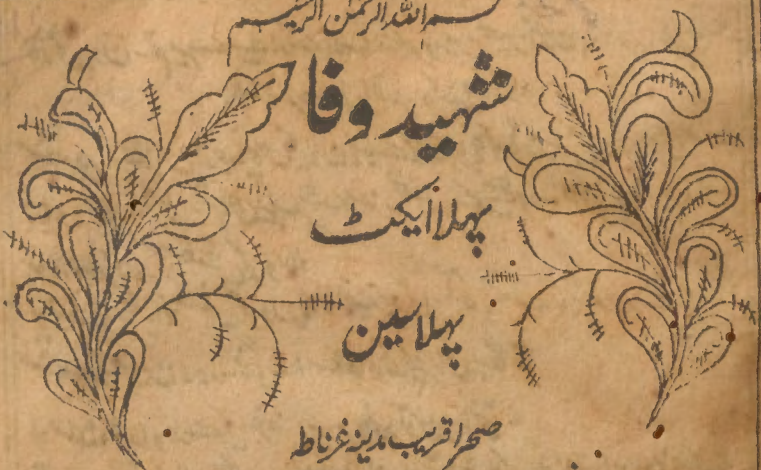 بسم اللہ الرحمٰن الرحیم
شہید وفا
پہلا ایکٹ
پہلا سین
صحرا قریب مدینہ غرناطہ